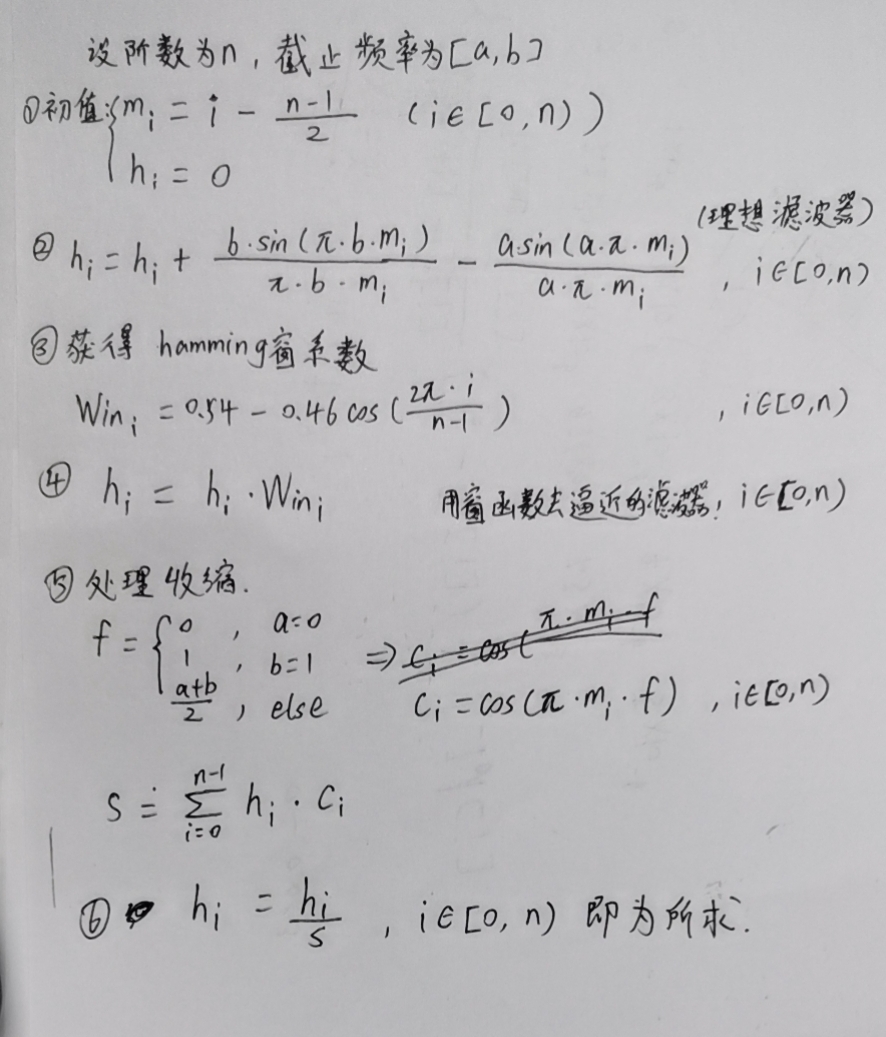 设阶数为n，截止频率为[a,b]
①初值:{m_i = i - \frac{n-1}{2} (i∈[0,n))
h_i = 0
(理想滤波器)
② h_i = h_i + \frac{b·sin(π·b·m_i)}{π·b·m_i} - \frac{a sin(a·π·m_i)}{a·π·m_i} , i∈[0,n)
③ 获得 hamming窗系数
Win_i = 0.54 - 0.46 cos(\frac{2π·i}{n-1}) , i∈[0,n)
④ h_i = h_i·Win_i 用窗函数去逼近的滤波器, i∈[0,n)
⑤ 处理收缩.
f = { 0 , a=0
1 , b=1 ⇒ c_i = cos(π·m_i·f
\frac{a+b}{2} , else c_i = cos(π·m_i·f) , i∈[0,n)
S = \sum_{i=0}^{n-1} h_i·c_i
⑥ h_i = \frac{h_i}{s} , i∈[0,n) 即为所求.